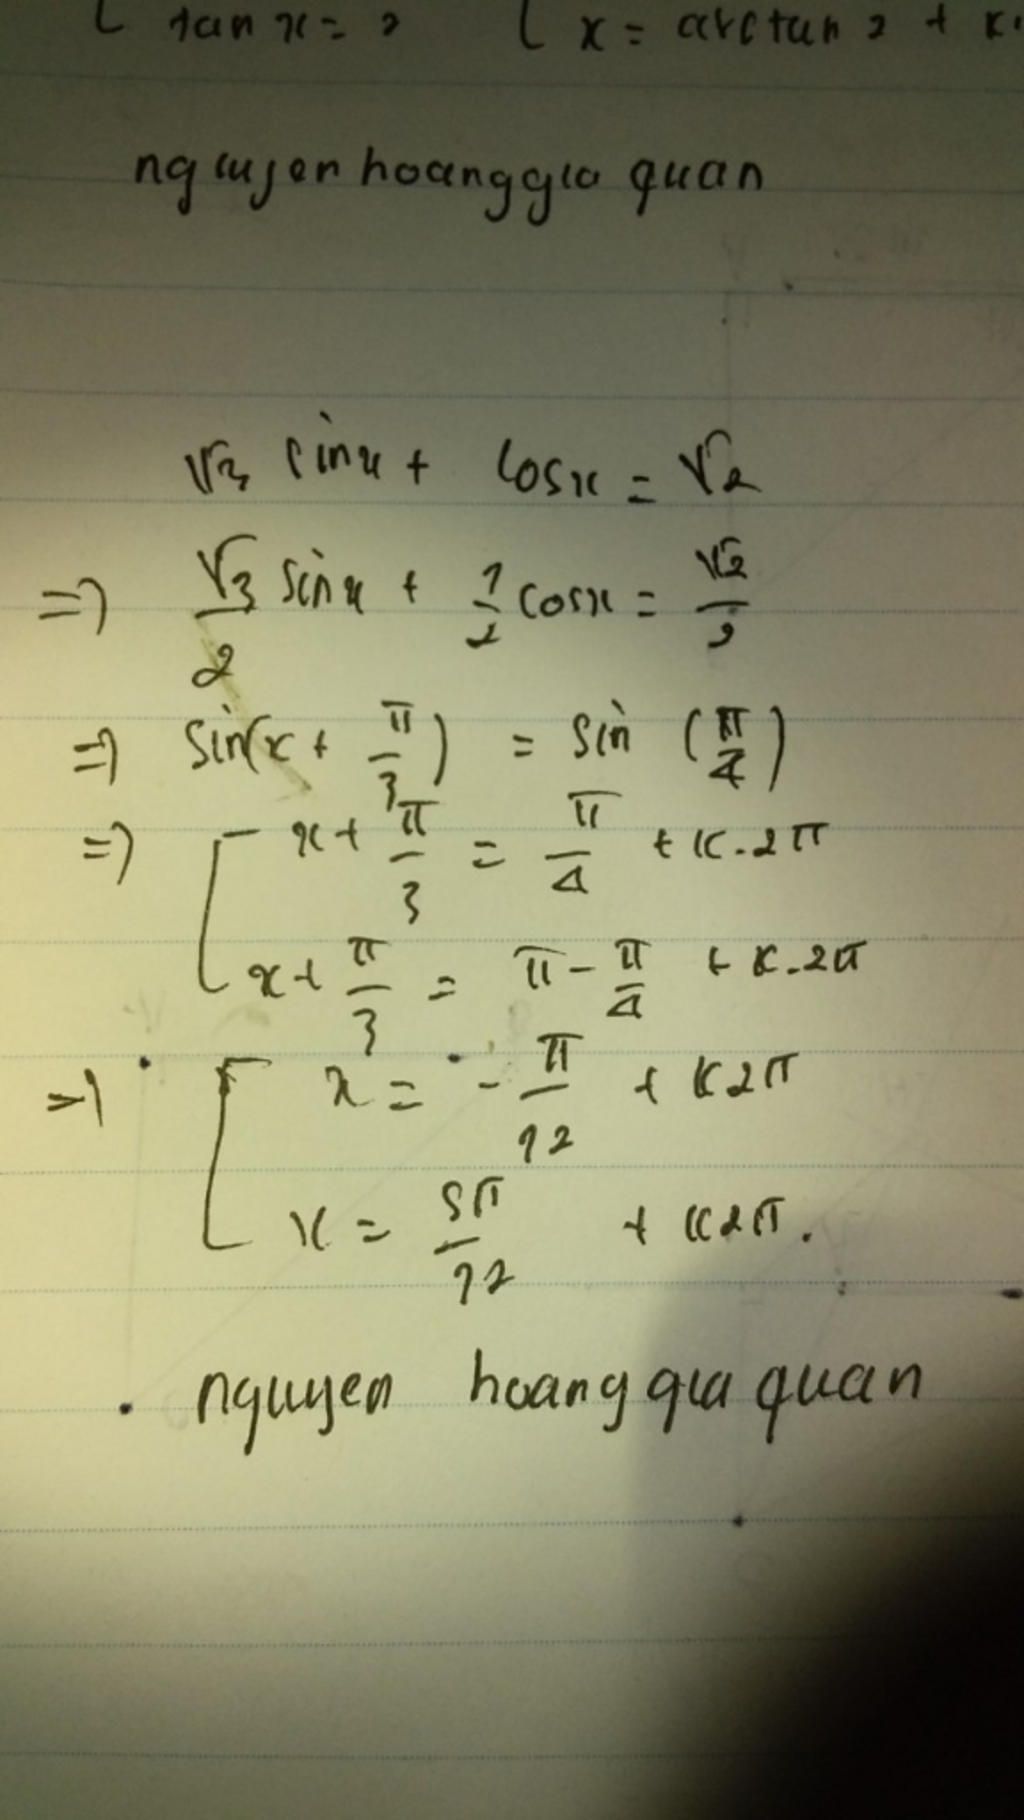 tan x = 2 x = arctan 2 + k.
nguyen hoang gia quan
√3 sinx + cosx = √2
=> √3/2 sinx + 1/2 cosx = √2/2
=> sin(x + π/3) = sin (π/4)
=> [ x + π/3 = π/4 + k.2π
x + π/3 = π - π/4 + k.2π
=> [ x = - π/12 + k2π
x = 5π/12 + k2π.
. nguyen hoang gia quan